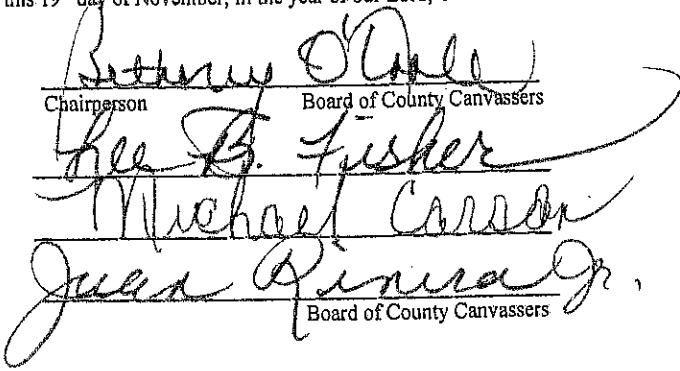 this 19 day of November, in the year of our Lord,
Bethany O'Toole
Chairperson Board of County Canvassers
Lee B. Fisher
Michael Carson
Juan Rivera Jr.
Board of County Canvassers